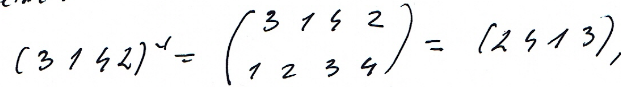 (3 1 4 2)⁻¹ = (3 1 4 2 / 1 2 3 4) = (2 4 1 3),